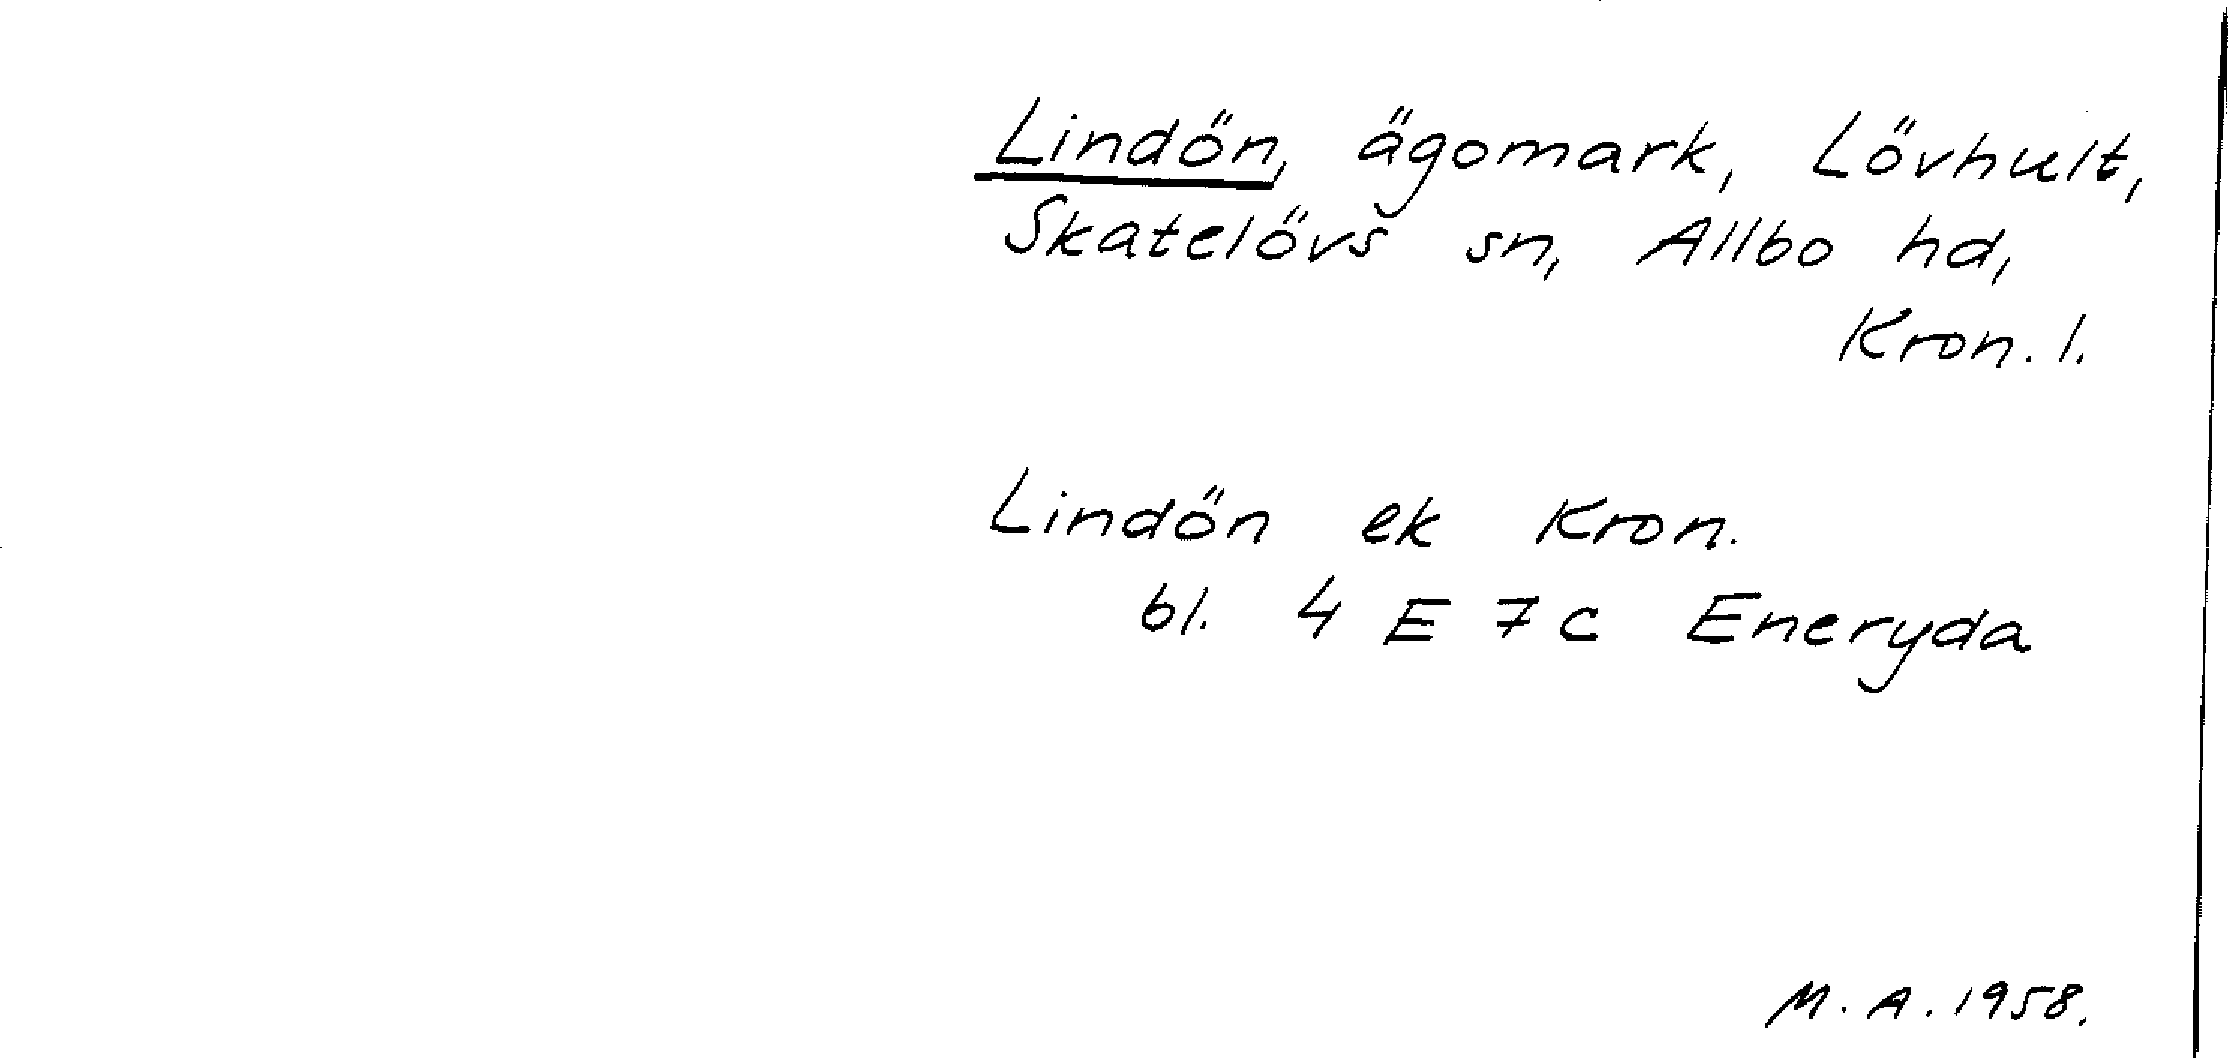 Lindön, ägomark, Lövhult,
Skatelövs sn, Allbo hd,
Kron. l.
Lindön ek Kron.
bl. 4 E 7 c Eneryda
M. A. 1958.